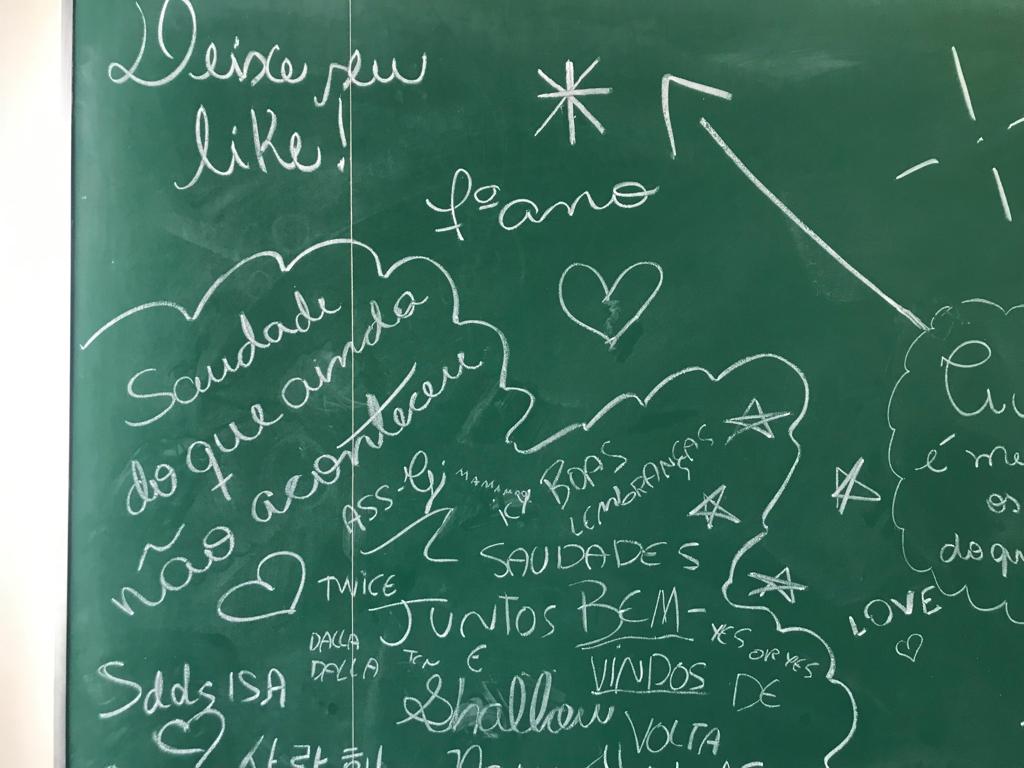 Deixe seu
like!
1º ano
Saudade
do que ainda
não aconteceu
ASS-
BOAS
LEMBRANÇAS
SAUDADES
TWICE
JUNTOS
BEM-
VINDOS
DE
VOLTA
YES
OR YES
DALLA
DALLA
E
Shallow
Sdds ISA
LOVE
é me
os
do qu